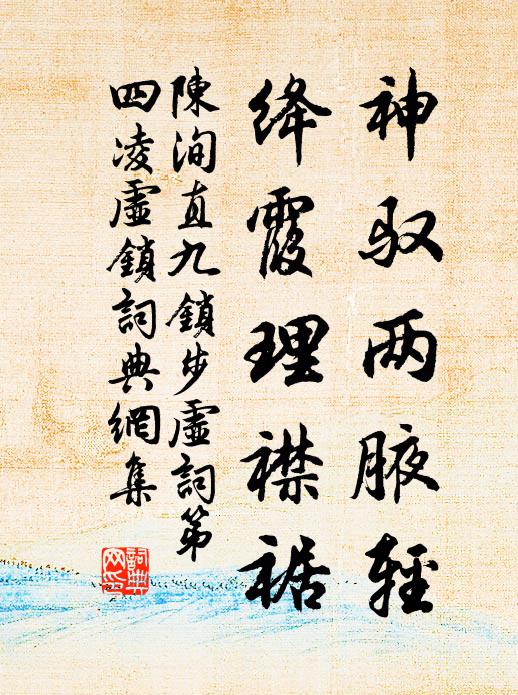 神驭两腋轻
绛霞理襟裾
陳洵直九鎖步虛詞第
四凌虛鎖詞典網集
詞典网印